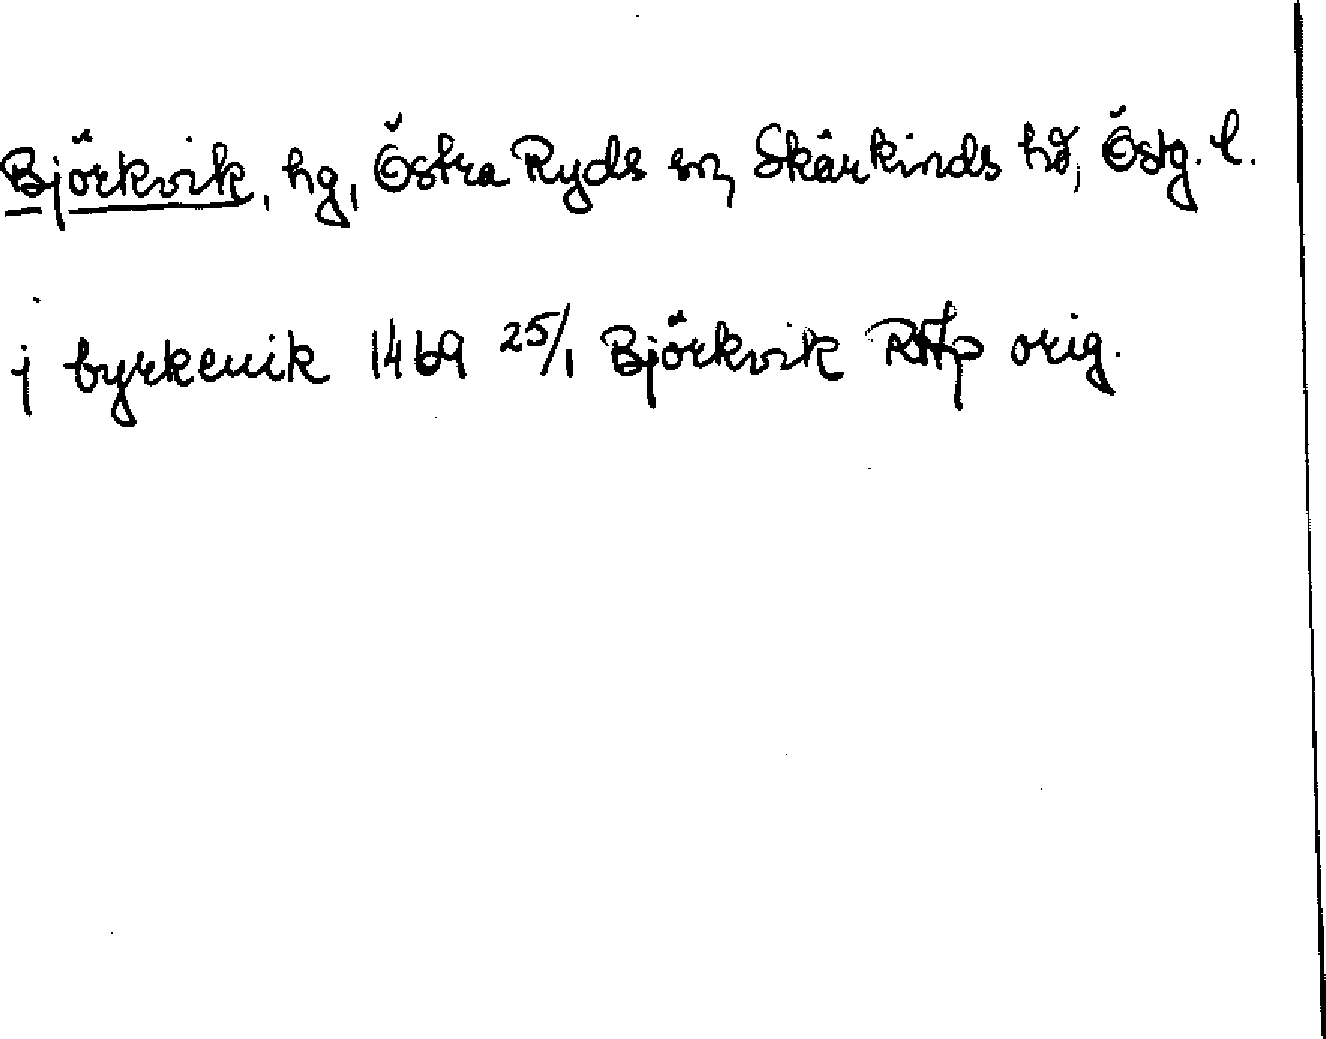 Björkvik, hg, Östra Ryds sn, Skärkinds hd, Östg. l.
j byrkeuik 1469 25/1 Björkvik RAp orig.